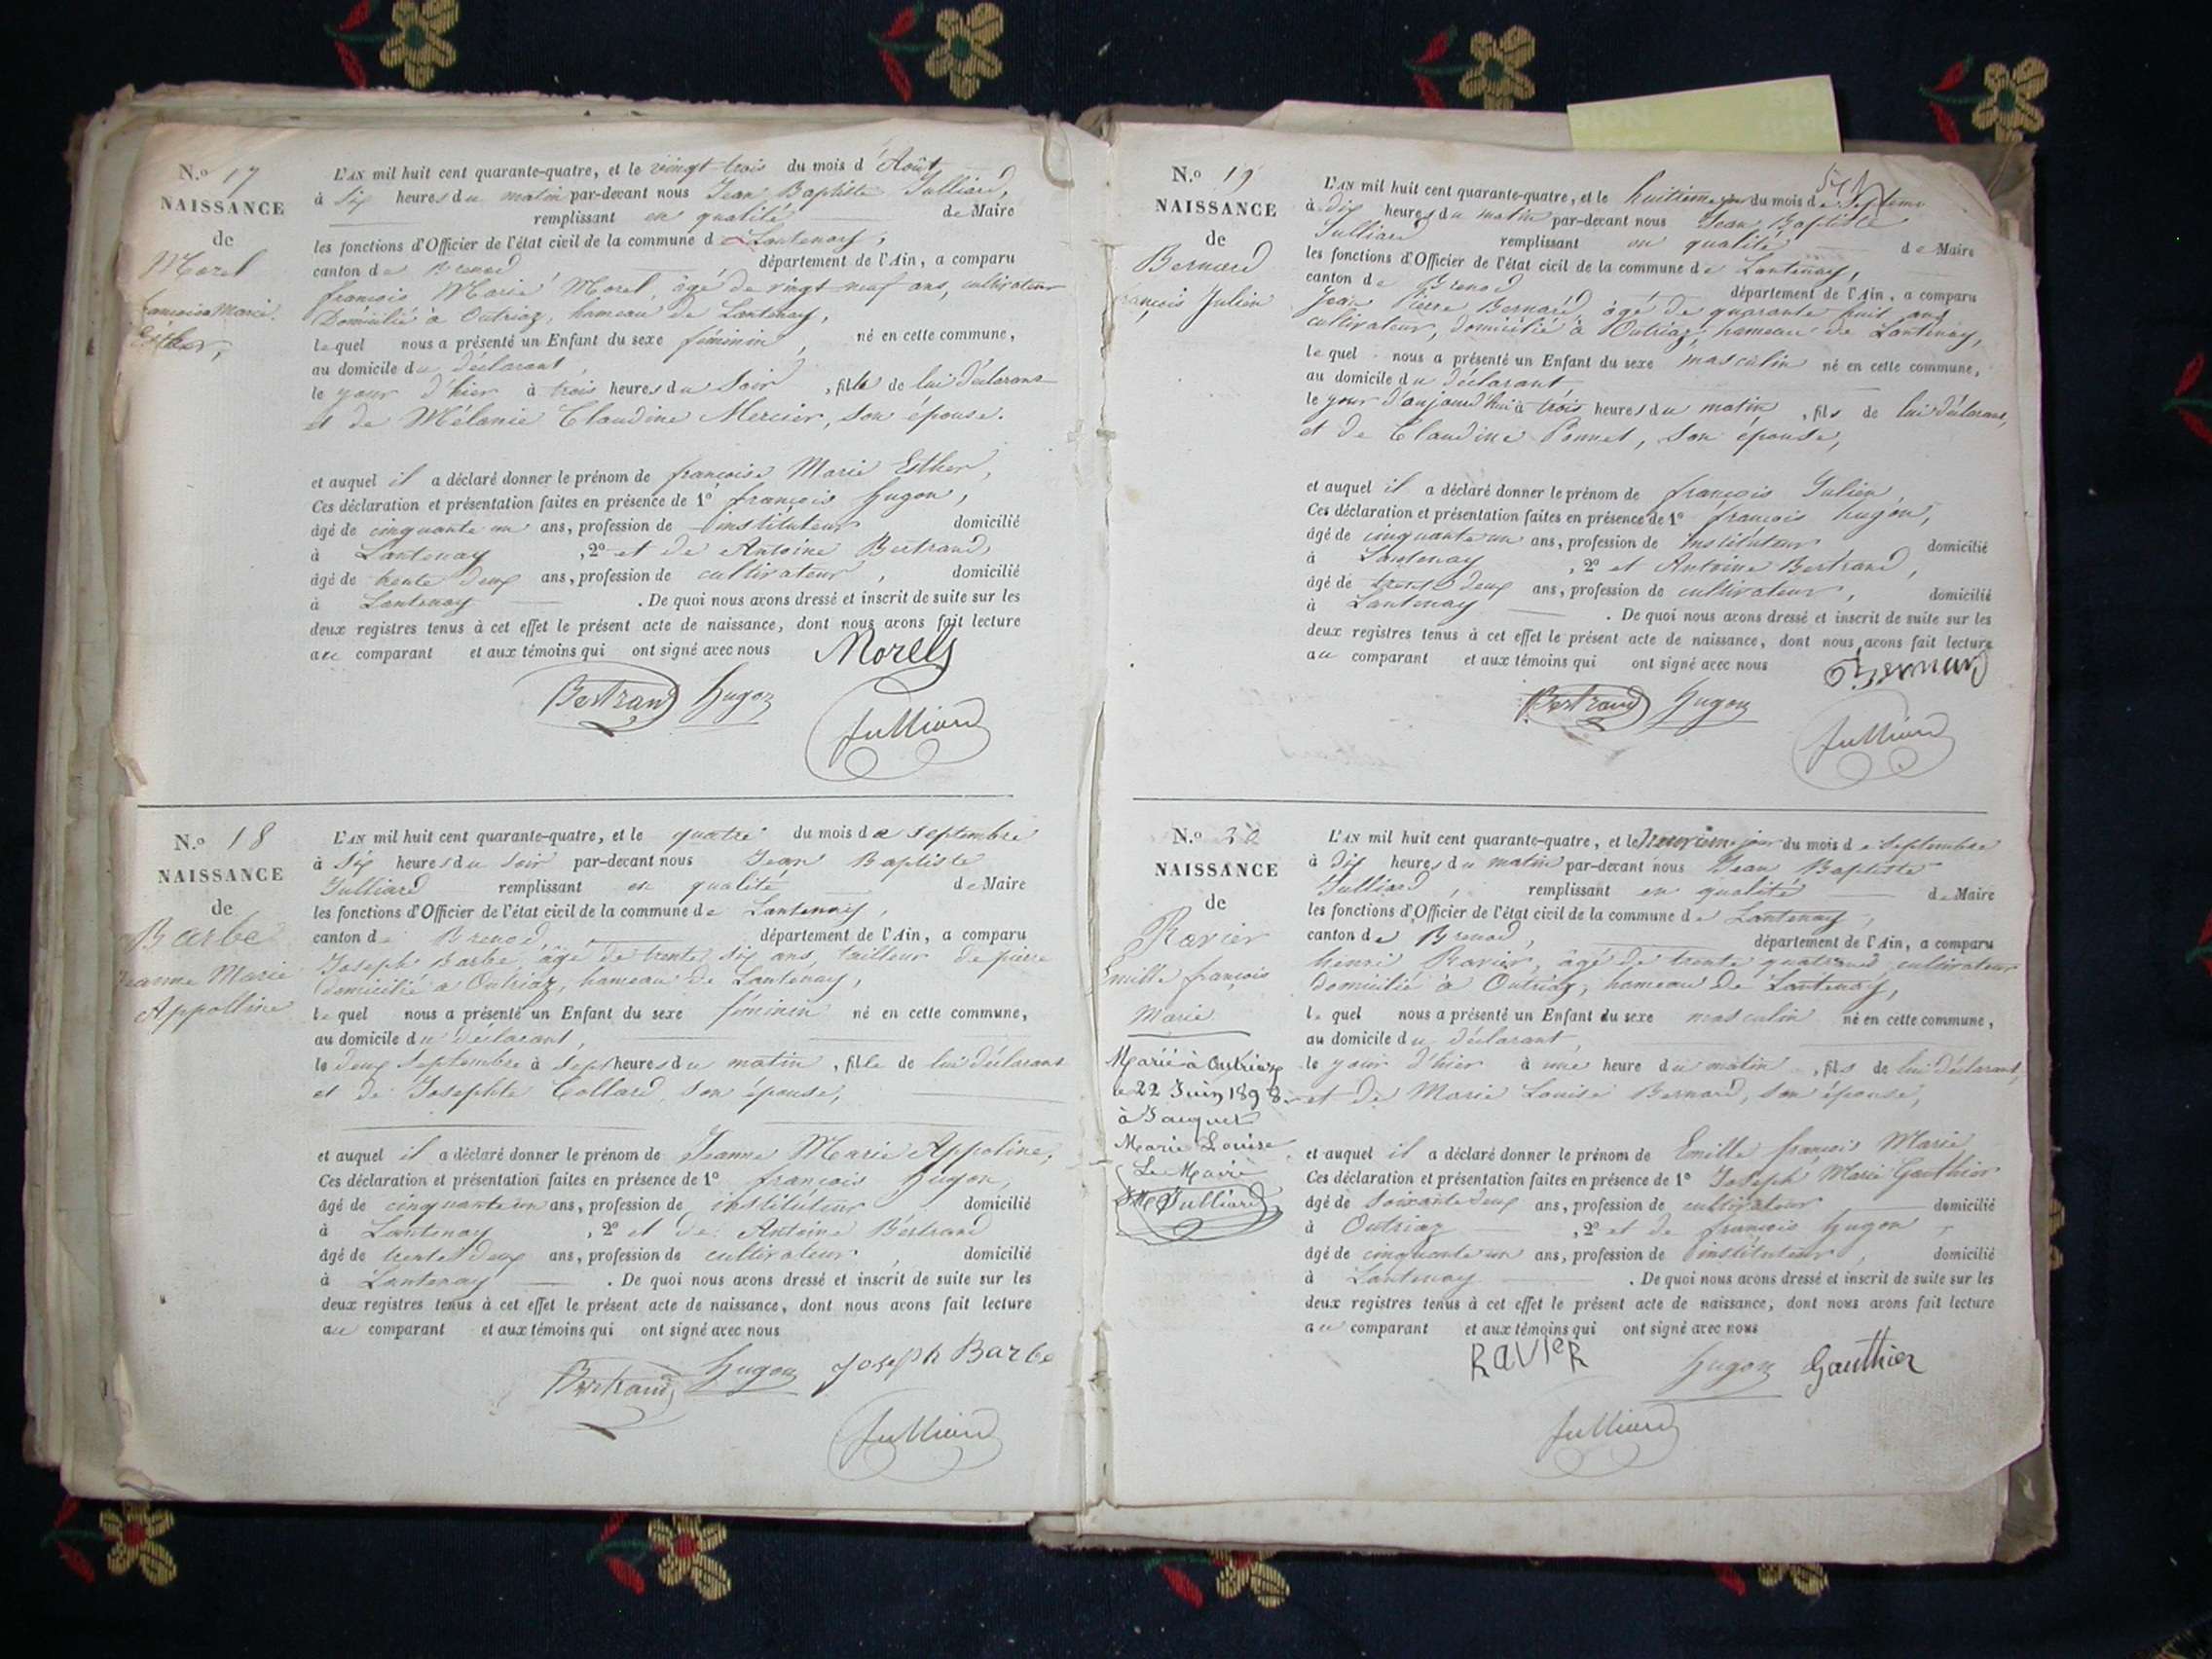 N.o 17
NAISSANCE
de
Morel
françoise Marie
Esther,
L'AN mil huit cent quarante-quatre, et le vingt trois du mois d'Août
à Six heures du matin par-devant nous Jean Baptiste Julliard,
remplissant en qualité de Maire
les fonctions d'Officier de l'état civil de la commune d Lantenay,
canton de Brenod département de l'Ain, a comparu
françois Marie Morel, âgé de vingt neuf ans, cultivateur
Domicilié à Outriaz, hameau de Lantenay,
lequel nous a présenté un Enfant du sexe féminin, né en cette commune,
au domicile du déclarant,
le jour d'hier à trois heures du Soir, fille de lui déclarant
et de Mélanie Claudine Mercier, son épouse.
et auquel il a déclaré donner le prénom de françoise Marie Esther,
Ces déclaration et présentation faites en présence de 1o françois hugon,
âgé de cinquante un ans, profession de instituteur domicilié
à Lantenay, 2o et de Antoine Bertrand,
âgé de trente deux ans, profession de cultivateur, domicilié
à Lantenay. De quoi nous avons dressé et inscrit de suite sur les
deux registres tenus à cet effet le présent acte de naissance, dont nous avons fait lecture
au comparant et aux témoins qui ont signé avec nous Morel
Bertrand hugon
Julliard
N.o 18
NAISSANCE
de
Barbe
Jeanne Marie
Appolline
L'AN mil huit cent quarante-quatre, et le quatre du mois de Septembre
à Six heures du soir par-devant nous Jean Baptiste
Julliard remplissant en qualité de Maire
les fonctions d'Officier de l'état civil de la commune de Lantenay,
canton de Brenod, département de l'Ain, a comparu
Joseph Barbe, âgé de trente six ans, tailleur de pierre
domicilié à Outriaz, hameau de Lantenay,
lequel nous a présenté un Enfant du sexe féminin né en cette commune,
au domicile du déclarant,
le deux Septembre à Sept heures du matin, fille de lui déclarant
et de Josephte Collard, son épouse,
et auquel il a déclaré donner le prénom de Jeanne Marie Appoline,
Ces déclaration et présentation faites en présence de 1o françois hugon,
âgé de cinquante un ans, profession de instituteur domicilié
à Lantenay, 2o et de Antoine Bertrand
âgé de trente deux ans, profession de cultivateur, domicilié
à Lantenay. De quoi nous avons dressé et inscrit de suite sur les
deux registres tenus à cet effet le présent acte de naissance, dont nous avons fait lecture
au comparant et aux témoins qui ont signé avec nous
Bertrand hugon Joseph Barbe
Julliard
N.o 19
NAISSANCE
de
Bernard
françois Julien
L'AN mil huit cent quarante-quatre, et le huitième jour du mois de Septembre
à dix heures du matin par-devant nous Jean Baptiste
Julliard remplissant en qualité de Maire
les fonctions d'Officier de l'état civil de la commune de Lantenay,
canton de Brenod département de l'Ain, a comparu
Jean Pierre Bernard, âgé de quarante huit ans
cultivateur, domicilié à Outriaz, hameau de Lantenay,
lequel nous a présenté un Enfant du sexe masculin né en cette commune,
au domicile du déclarant
le jour d'aujourd'hui à trois heures du matin, fils de lui déclarant,
et de Claudine Ponnet, son épouse,
et auquel il a déclaré donner le prénom de françois Julien,
Ces déclaration et présentation faites en présence de 1o françois hugon,
âgé de cinquante un ans, profession de instituteur domicilié
à Lantenay, 2o et Antoine Bertrand,
âgé de trente deux ans, profession de cultivateur, domicilié
à Lantenay. De quoi nous avons dressé et inscrit de suite sur les
deux registres tenus à cet effet le présent acte de naissance, dont nous avons fait lecture
au comparant et aux témoins qui ont signé avec nous Bernard
Bertrand hugon
Julliard
N.o 20
NAISSANCE
de
Ravier
Emille françois
Marie
Marié à Outriaz
le 22 Juin 1898
à Jacquet
Marie Louise
Le Maire
Julliard
L'AN mil huit cent quarante-quatre, et le neuvième jour du mois de Septembre
à dix heures du matin par-devant nous Jean Baptiste
Julliard, remplissant en qualité de Maire
les fonctions d'Officier de l'état civil de la commune de Lantenay,
canton de Brenod, département de l'Ain, a comparu
henri Ravier, âgé de trente quatre ans, cultivateur
Domicilié à Outriaz, hameau de Lantenay,
lequel nous a présenté un Enfant du sexe masculin né en cette commune,
au domicile du déclarant
le jour d'hier à une heure du matin, fils de lui déclarant,
et de Marie Louise Bernard, son épouse,
et auquel il a déclaré donner le prénom de Emille françois Marie
Ces déclaration et présentation faites en présence de 1o Joseph Marie Gauthier
âgé de soixante deux ans, profession de cultivateur domicilié
à Outriaz, 2o et de françois hugon,
âgé de cinquante un ans, profession de instituteur, domicilié
à Lantenay. De quoi nous avons dressé et inscrit de suite sur les
deux registres tenus à cet effet le présent acte de naissance, dont nous avons fait lecture
au comparant et aux témoins qui ont signé avec nous
RAVIER hugon Gauthier
Julliard